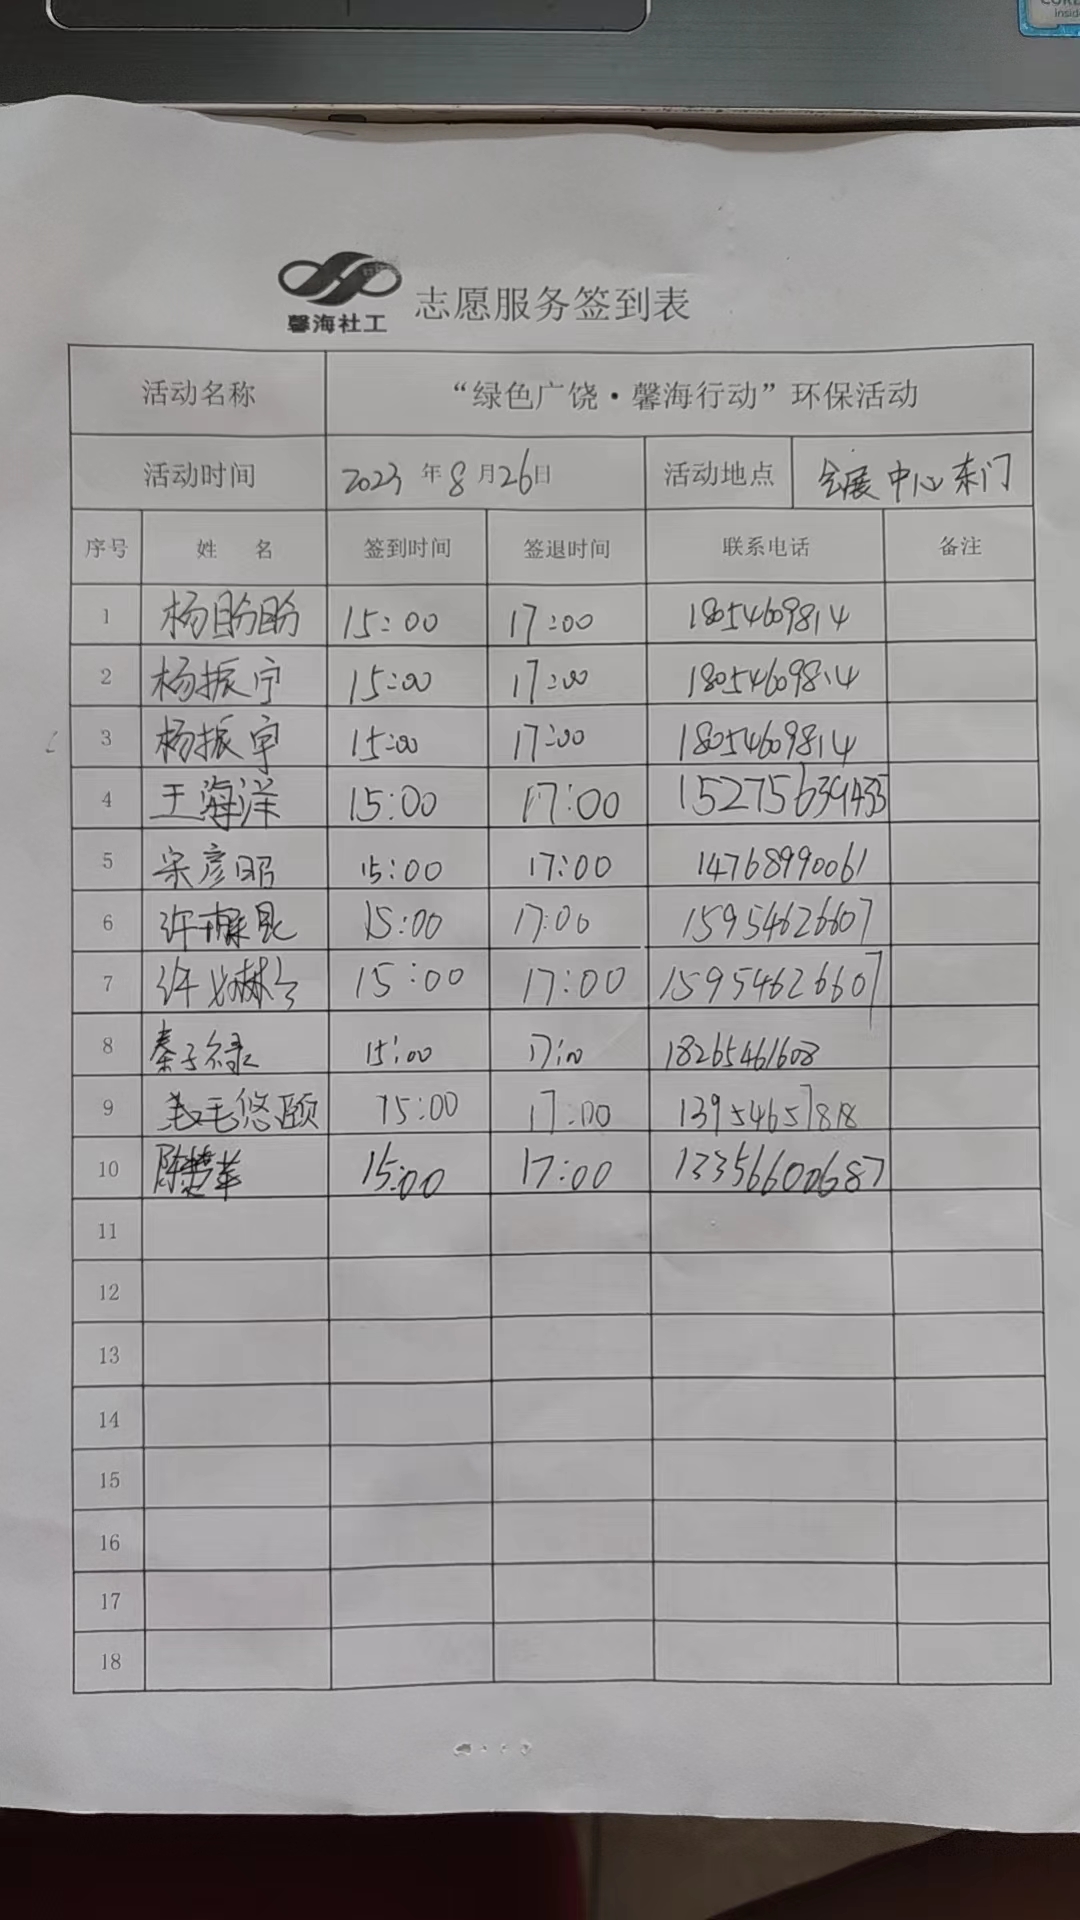 CORE
inside
馨海社工
志愿服务签到表
活动名称 “绿色广饶·馨海行动”环保活动
活动时间 2023年8月26日 活动地点 会展中心东门
序号 姓名 签到时间 签退时间 联系电话 备注
1 杨盼盼 15:00 17:00 18054609814
2 杨振宁 15:00 17:00 18054609814
3 杨振宇 15:00 17:00 18054609814
4 王海洋 15:00 17:00 15275639433
5 宋彦昭 15:00 17:00 14768990061
6 许 15:00 17:00 15954626607
7 许 15:00 17:00 15954626607
8 秦子禄 15:00 17:00 18265461608
9 悠颐 15:00 17:00 13954657818
10 陈 15:00 17:00 13356600687
11
12
13
14
15
16
17
18